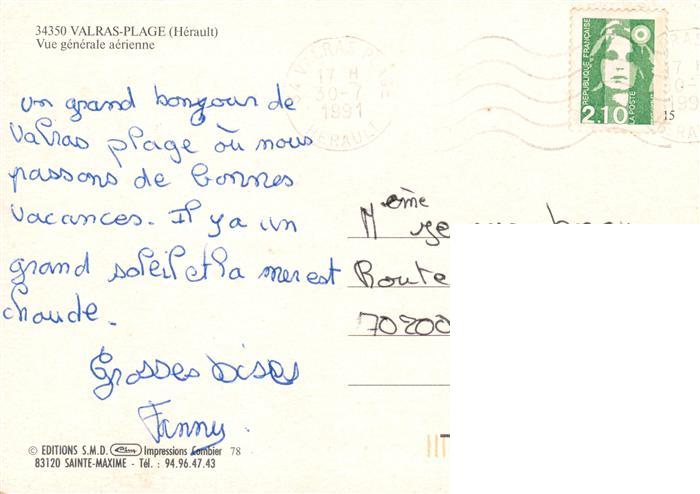 34350 VALRAS-PLAGE (Hérault)
Vue générale aérienne
34 VALRAS PLAGE
17 H
30-7
1991
HERAULT
REPUBLIQUE FRANÇAISE
2,10
LA POSTE
15
un grand bonjour de
Valras plage où nous
passons de bonnes
vacances. Il y a un
grand soleil et la mer est
chaude.
Grosses bises
Fanny
Mème
Route
70200
© EDITIONS S.M.D. Cim Impressions Combier 78
83120 SAINTE-MAXIME - Tél. : 94.96.47.43